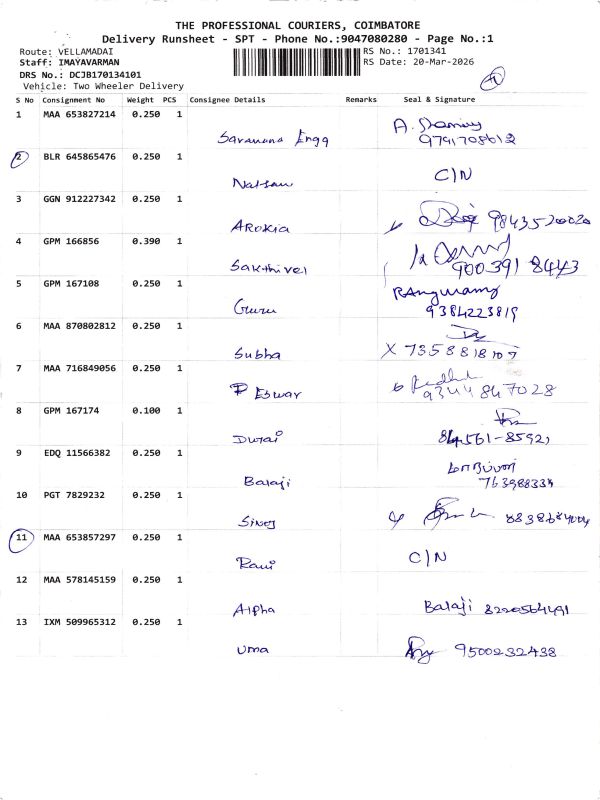 THE PROFESSIONAL COURIERS, COIMBATORE
Delivery Runsheet - SPT - Phone No.:9047080280 - Page No.:1
Route: VELLAMADAI
RS No.: 1701341
Staff: IMAYAVARMAN
RS Date: 20-Mar-2026
DRS No.: DCJB170134101
Vehicle: Two Wheeler Delivery
S No Consignment No Weight PCS Consignee Details Remarks Seal & Signature
1 MAA 653827214 0.250 1
Saravana Engg
9791708612
2 BLR 645865476 0.250 1
Natsan C/N
3 GGN 912227342 0.250 1
AROKIA
4 GPM 166856 0.390 1
Sakthivel 900391 8443
5 GPM 167108 0.250 1
Guru 9384223819
6 MAA 870802812 0.250 1
Subha X 7358818107
7 MAA 716849056 0.250 1
Eswar 9344847028
8 GPM 167174 0.100 1
Durai 84561-85921
9 EDQ 11566382 0.250 1
Balaji 763988334
10 PGT 7829232 0.250 1
Sinoj
11 MAA 653857297 0.250 1
Rani C/N
12 MAA 578145159 0.250 1
Alpha Balaji 8220564491
13 IXM 509965312 0.250 1
Uma 9500232438